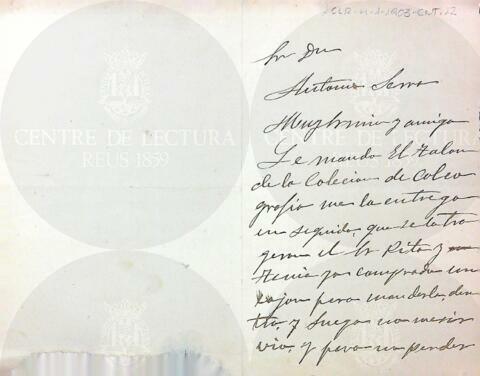 CLR-U-1-1903-ENT.12
CENTRE DE LECTURA
REUS 1859
CENTRE DE LECTURA
REUS 1859
Sr Dn
Antonio Serra
Muy Sr mio y amigo
Le mando El Talon
de la Colecion de Coleo
grafia me la entrego
en seguida, que se la tra
geron el Sr Rita y
tenia ya comprado un
cajon para mandarla, den
tro y luego no me sir
vio, y para no perder